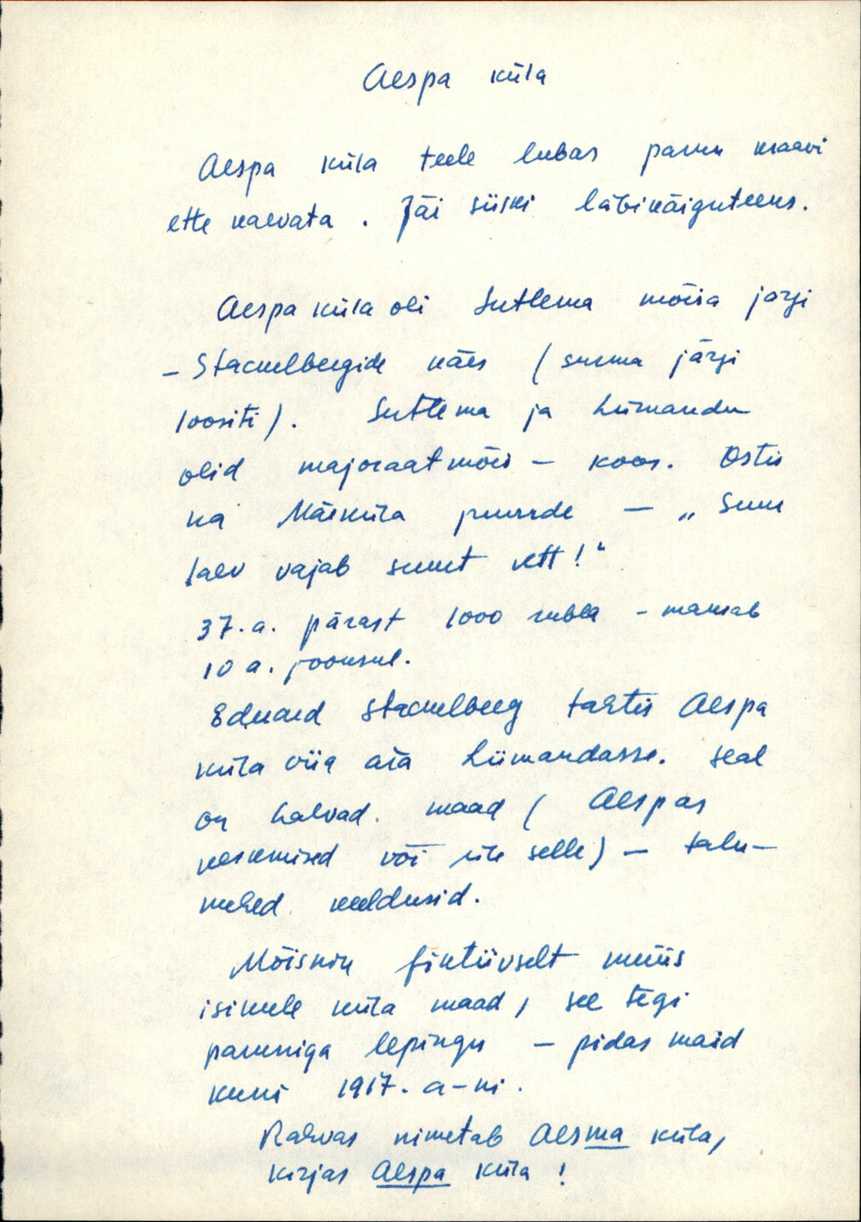 Aespa küla
Aespa küla teele lubas parun kraavi
ette kaevata. Jäi siiski läbikäiguteeks.
Aespa küla oli Sutlema mõisa järgi
– Stackelbergide käes (surma järgi
loositi). Sutlema ja Liimandu
olid majoraatmõis – koos. Ostis
ka Mäeküla juurde – „Suur
laev vajab suurt vett!“
37.a. pärast 1000 rubla – maksab
10 a. jooksul.
Eduard Stackelberg tahtis Aespa
küla viia ära Liimandasse. Seal
on halvad maad (Aespas
keskmised või üle selle) – talu-
mehed keeldusid.
Mõisnik fiktiivselt müüs
isikule küla maad, see tegi
paruniga lepingu – pidas maid
kuni 1917. a-ni.
Rahvas nimetab Aesma küla,
kirjas Aespa küla!